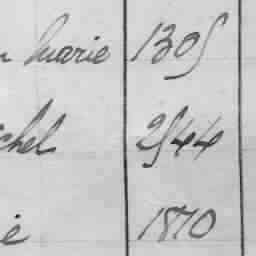 n Marie 1305
chel 2544
ie 1870